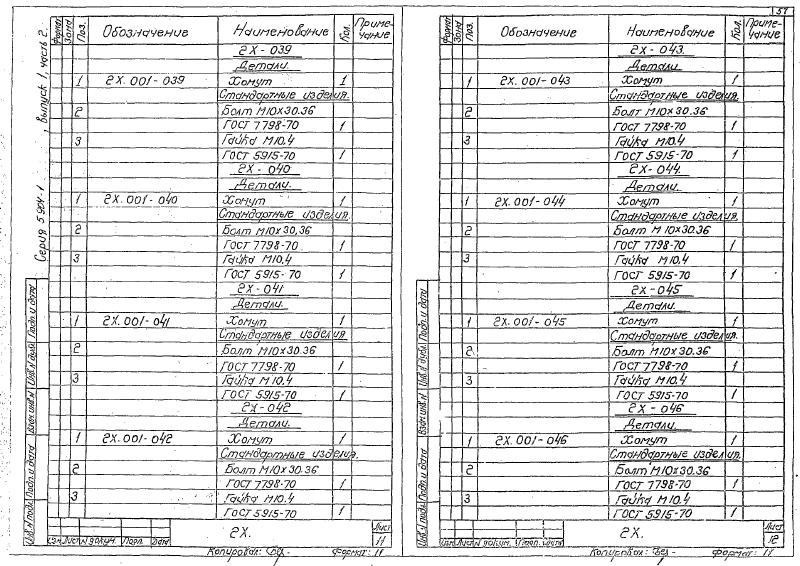 Серия 5.904-1 , Выпуск 1, часть 2.
Формат Зона Поз. Обозначение Наименование Кол. Примечание
2Х-039
Детали.
1 2Х.001-039 Хомут 1
Стандартные изделия.
2 Болт М10х30.36
ГОСТ 7798-70 1
3 Гайка М10.4
ГОСТ 5915-70 1
2Х-040
Детали.
1 2Х.001-040 Хомут 1
Стандартные изделия
2 Болт М10х30,36
ГОСТ 7798-70 1
3 Гайка М10.4
ГОСТ 5915-70 1
2Х-041
Детали.
1 2Х.001-041 Хомут 1
Стандартные изделия
2 Болт М10х30.36
ГОСТ 7798-70 1
3 Гайка М10.4
ГОСТ 5915-70 1
2Х-042
Детали.
1 2Х.001-042 Хомут 1
Стандартные изделия.
2 Болт М10х30.36
ГОСТ 7798-70 1
3 Гайка М10.4
ГОСТ 5915-70 1
Инв.N подл. Подп. и дата Взам.инв.N Инв.N дубл. Подп. и дата
Изм. Лист N докум. Подп. Дата
2Х.
Лист
11
Копировал: Формат: 11
57
Формат Зона Поз. Обозначение Наименование Кол. Примечание
2Х-043.
Детали.
1 2Х.001-043 Хомут 1
Стандартные изделия.
2 Болт М10х30.36
ГОСТ 7798-70 1
3 Гайка М10.4
ГОСТ 5915-70 1
2Х-044.
Детали.
1 2Х.001-044 Хомут 1
Стандартные изделия.
2 Болт М10х30.36
ГОСТ 7798-70 1
3 Гайка М10.4
ГОСТ 5915-70 1
2Х-045
Детали.
1 2Х.001-045 Хомут 1
Стандартные изделия.
2 Болт М10х30.36
ГОСТ 7798-70 1
3 Гайка М10.4
ГОСТ 5915-70 1
2Х-046
Детали.
1 2Х.001-046 Хомут 1
Стандартные изделия.
2 Болт М10х30.36
ГОСТ 7798-70 1
3 Гайка М10.4
ГОСТ 5915-70 1
Инв.N подл. Подп. и дата Взам.инв.N Инв.N дубл. Подп. и дата
Изм. Лист N докум. Подп. Дата
2Х.
Лист
12
Копировал: Формат: 11